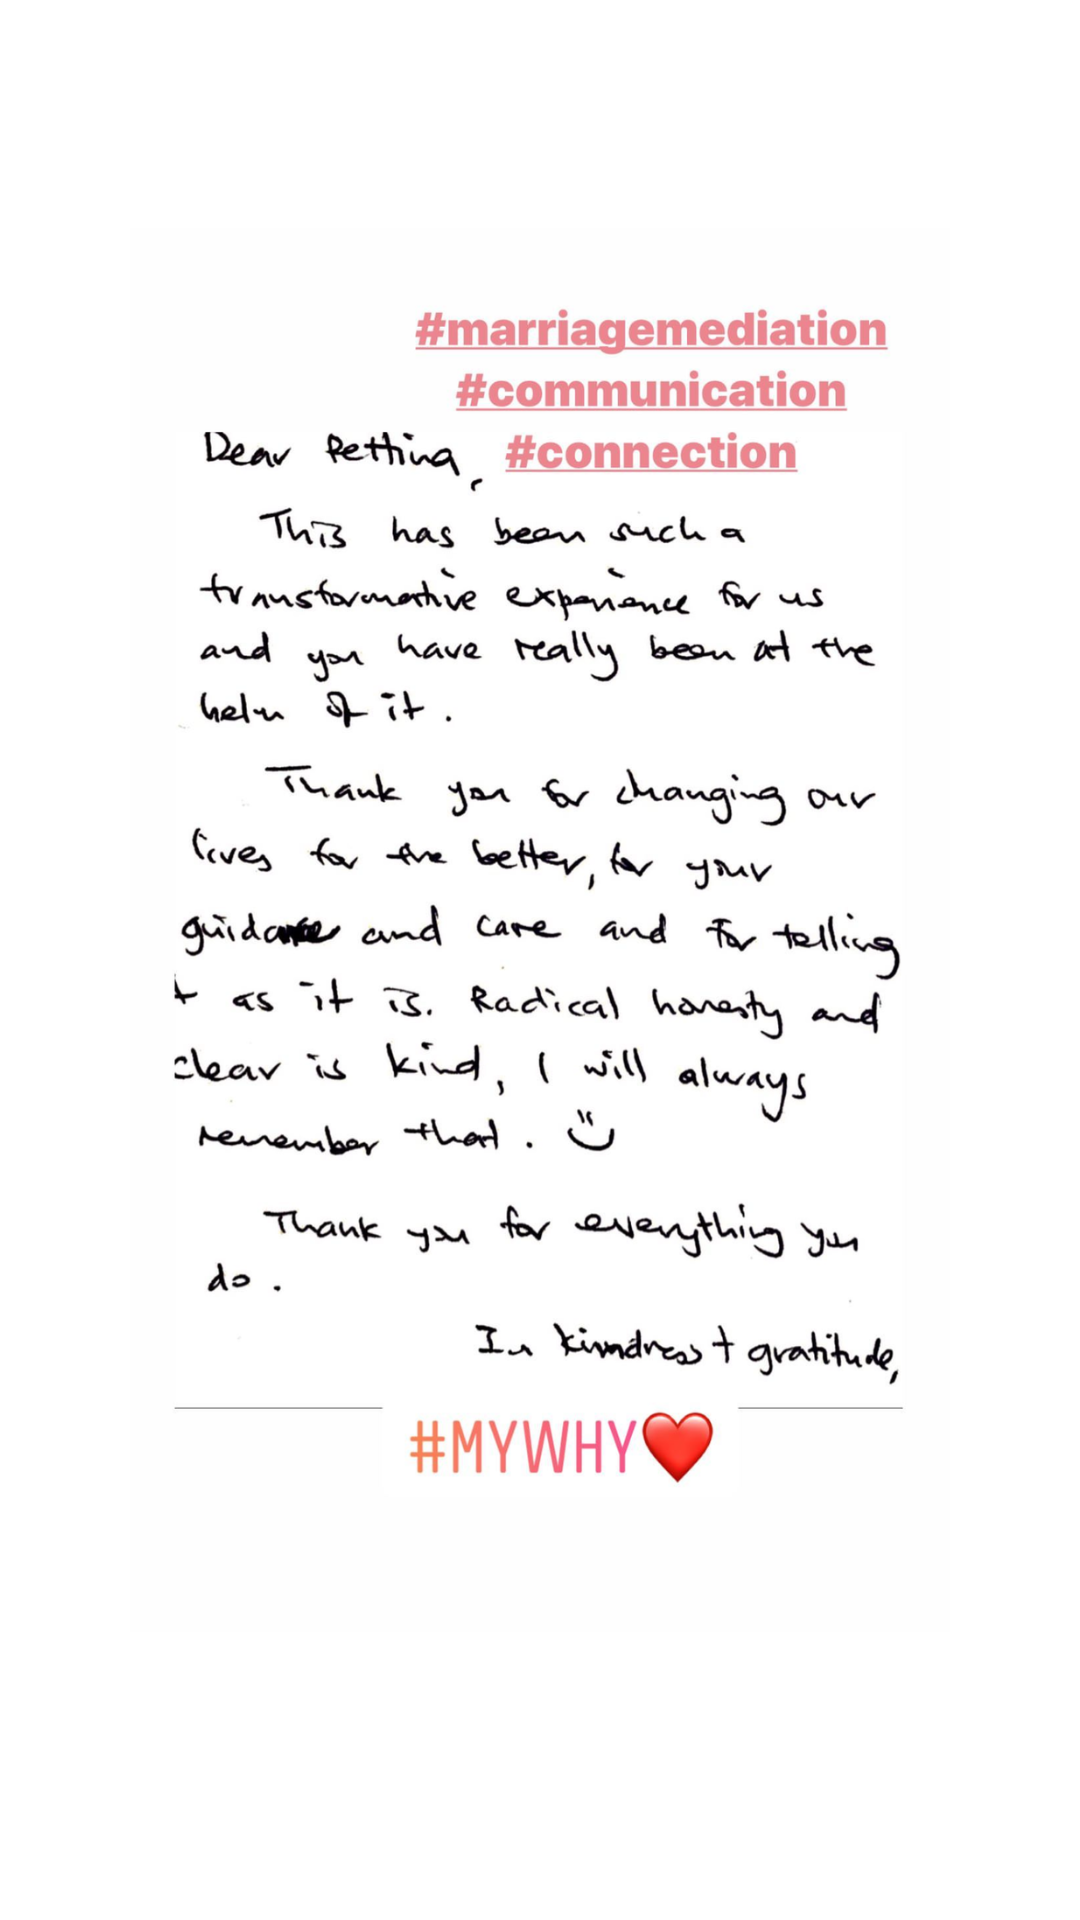 #marriagemediation
#communication
#connection
Dear Bettina,
This has been such a
transformative experience for us
and you have really been at the
helm of it.
Thank you for changing our
lives for the better, for your
guidance and care and for telling
t as it is. Radical honesty and
clear is kind, I will always
remember that. :)
Thank you for everything you
do.
In kindness + gratitude,
#MYWHY❤️